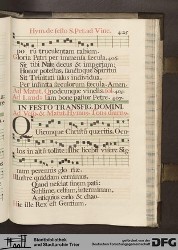 Hymn. de festo S. Petri ad Vinc. 405
po ru trucidantum rabiem.
Gloria Patri per immensa sæcula,
Sit tibi Nate decus & imperium,
Honor potestas, sanctoque Spiritui
Sit Trinitati salus individua,
Per infinita sæculorum sæcula. Amen.
Ad Matut. Quodcumque vinclis
Ad Laud. Iam bone pastor Petre.
IN FESTO TRANSFIG. DOMINI.
Ad Vesp. & Matut. Hymnus.
Quicumque Christum quæritis, Ocu
los in altum tollite: Illic licebit visere Sig
num perennis gloriæ.
Illustre quiddam cernimus,
Quod nesciat finem pati,
Sublime, celsum, interminum,
Antiquius cælo & chao.
Hic ille Rex est Gentium,
Stadtbibliothek
und Stadtarchiv Trier
gefördert durch die
Deutsche Forschungsgemeinschaft
DFG